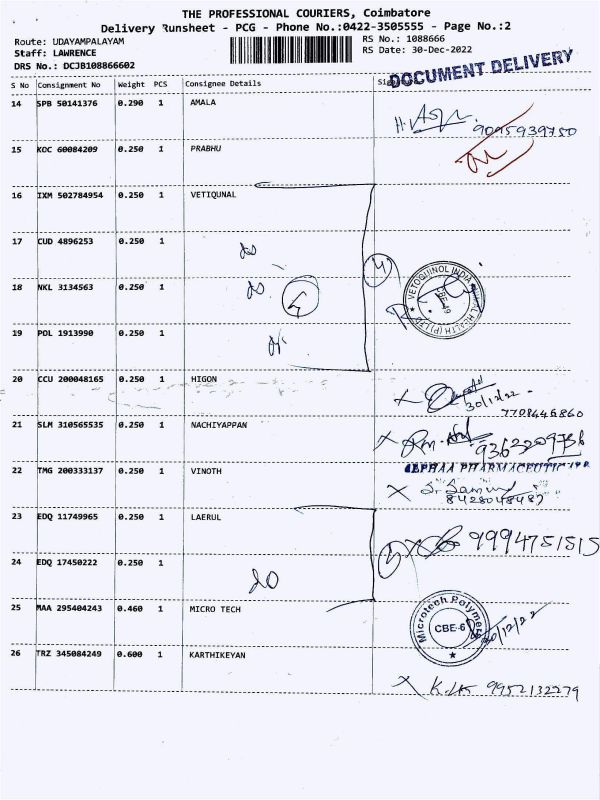 THE PROFESSIONAL COURIERS, Coimbatore
Delivery Runsheet - PCG - Phone No.:0422-3505555 - Page No.:2
Route: UDAYAMPALAYAM
RS No.: 1088666
Staff: LAWRENCE
RS Date: 30-Dec-2022
DRS No.: DCJB108866602
DOCUMENT DELIVERY
S No Consignment No Weight PCS Consignee Details
14 SPB 50141376 0.290 1 AMALA
9095939750
15 KOC 60084209 0.250 1 PRABHU
16 IXM 502784954 0.250 1 VETIQUNAL
17 CUD 4896253 0.250 1
4
18 NKL 3134563 0.250 1
VETOQUINOL INDIA ANIMAL HEALTH (P) LTD
CBE-49
19 POL 1913990 0.250 1
20 CCU 200048165 0.250 1 HIGON
30/12/22
7708446860
21 SLM 310565535 1 0.250 NACHIYAPPAN
9362209736
22 TMG 200333137 0.250 1 VINOTH
8428048487
23 EDQ 11749965 0.250 1 LAERUL
9994751515
24 EDQ 17450222 0.250 1
25 MAA 295404243 0.460 1 MICRO TECH
Microtech Polymers
CBE-6
30/12/22
26 TRZ 345084249 0.600 1 KARTHIKEYAN
9952132279